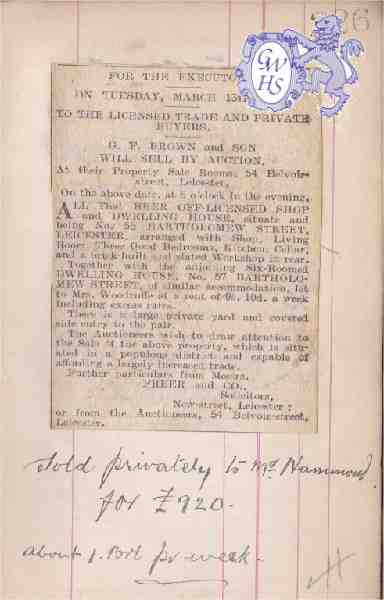 26
GWHS
FOR THE EXECUTO
ON TUESDAY, MARCH 15
TO THE LICENSED TRADE AND PRIVATE
BUYERS.
G. F. BROWN and SON
WILL SELL BY AUCTION,
At their Property Sale Rooms, 54 Belvoir-
street, Leicester,
On the above date, at 6 o'clock in the evening,
ALL That BEER OFF-LICENSED SHOP
and DWELLING HOUSE, situate and
being No. 55 BARTHOLOMEW STREET,
LEICESTER, arranged with Shop, Living
Room, Three Good Bedrooms, Kitchen, Cellar,
and a brick-built and slated Workshop in rear.
Together with the adjoining Six-Roomed
DWELLING HOUSE, No. 57 BARTHOLO-
MEW STREET, of similar accommodation, let
to Mrs. Woodruffe at a rent of 9s. 10d. a week
including excess rates.
There is a large private yard and covered
side entry to the pair.
The Auctioneers wish to draw attention to
the Sale of the above property, which is situ-
ated in a populous district and capable of
affording a largely increased trade.
Further particulars from Messrs.
FREER and CO.,
Solicitors,
New-street, Leicester;
or from the Auctioneers, 54 Belvoir-street,
Leicester.
Sold privately to Mr. Hammond
for £920.
about 1. Brl pr week.